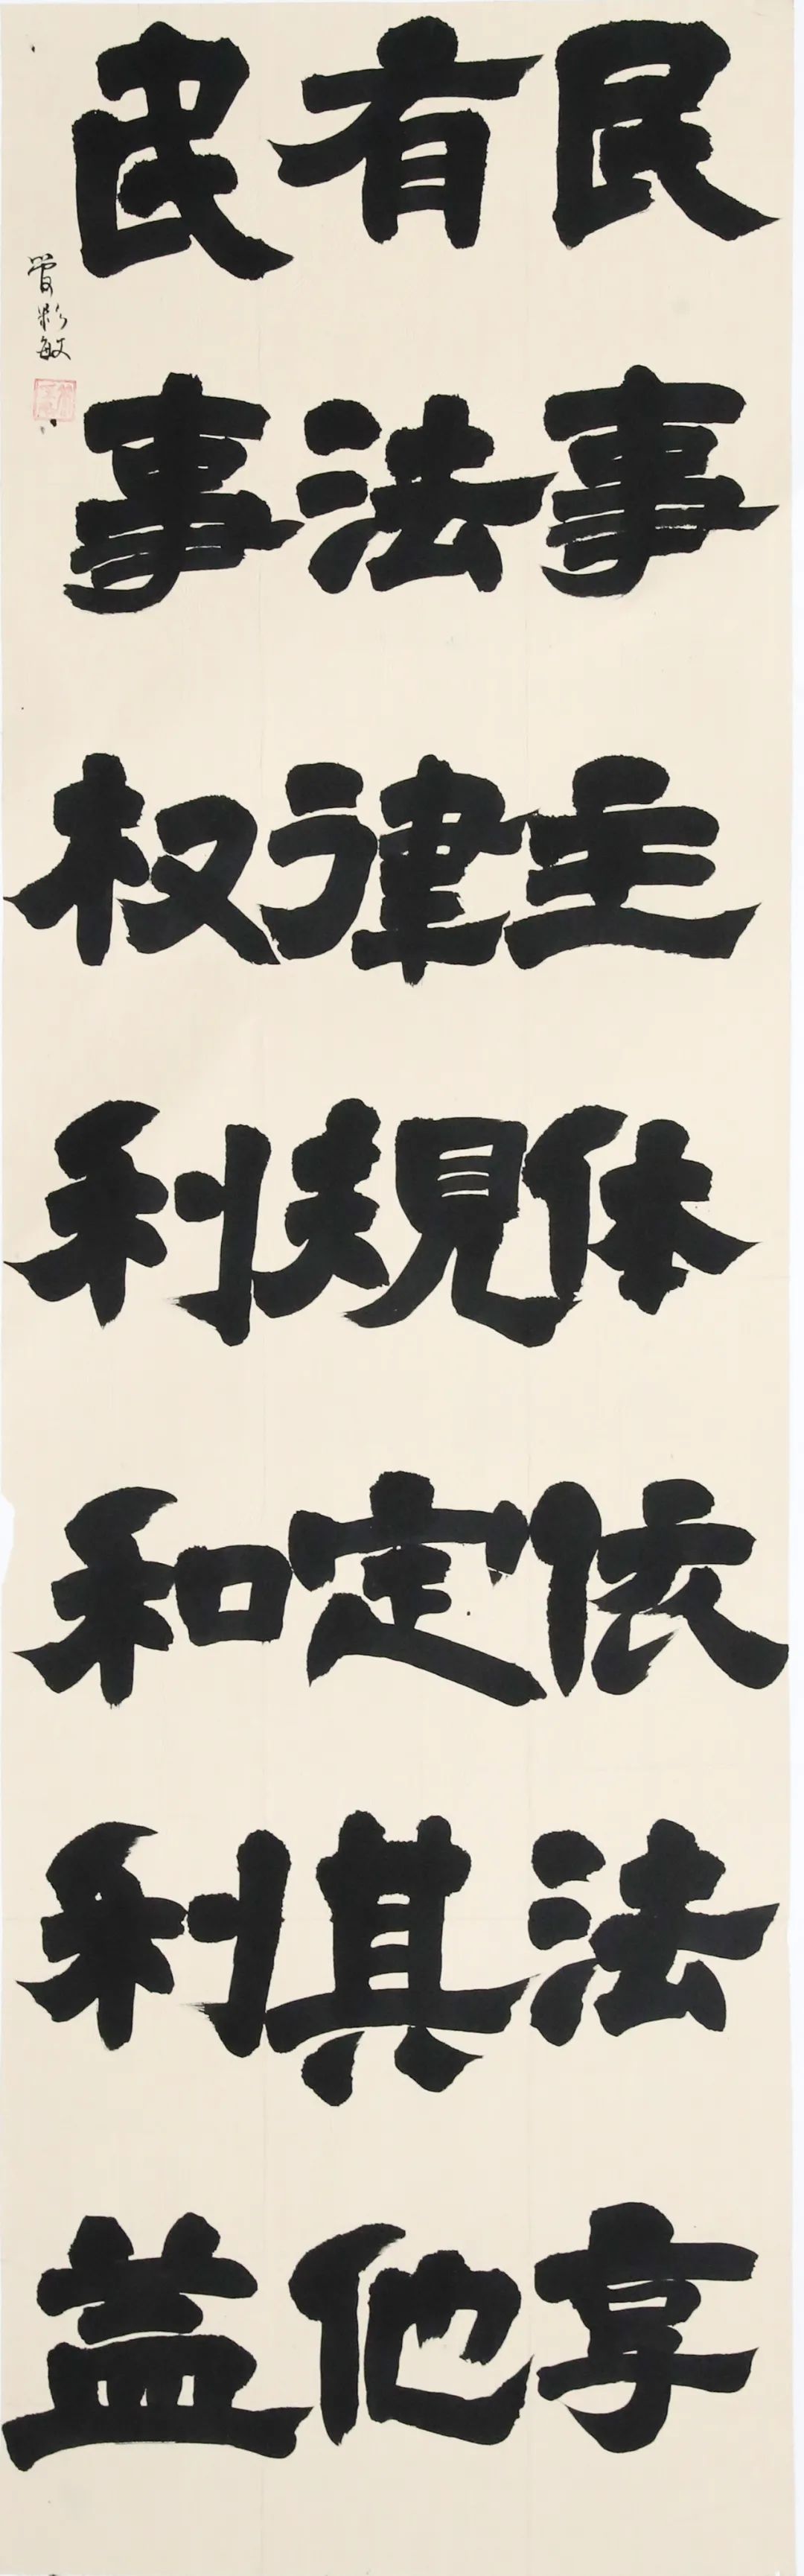 民事主体依法享
有法律規定其他
民事权利和利益
管彩敏